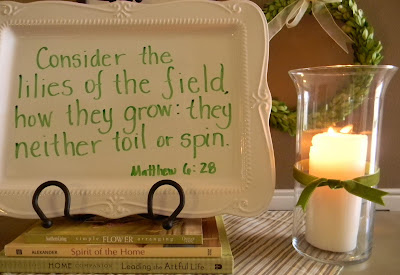 Consider the
lilies of the field,
how they grow: they
neither toil or spin.
Matthew 6:28
simple FLOWER arranging
ALEXANDER Spirit of the Home
HOME COMPANION Leading the Artful Life